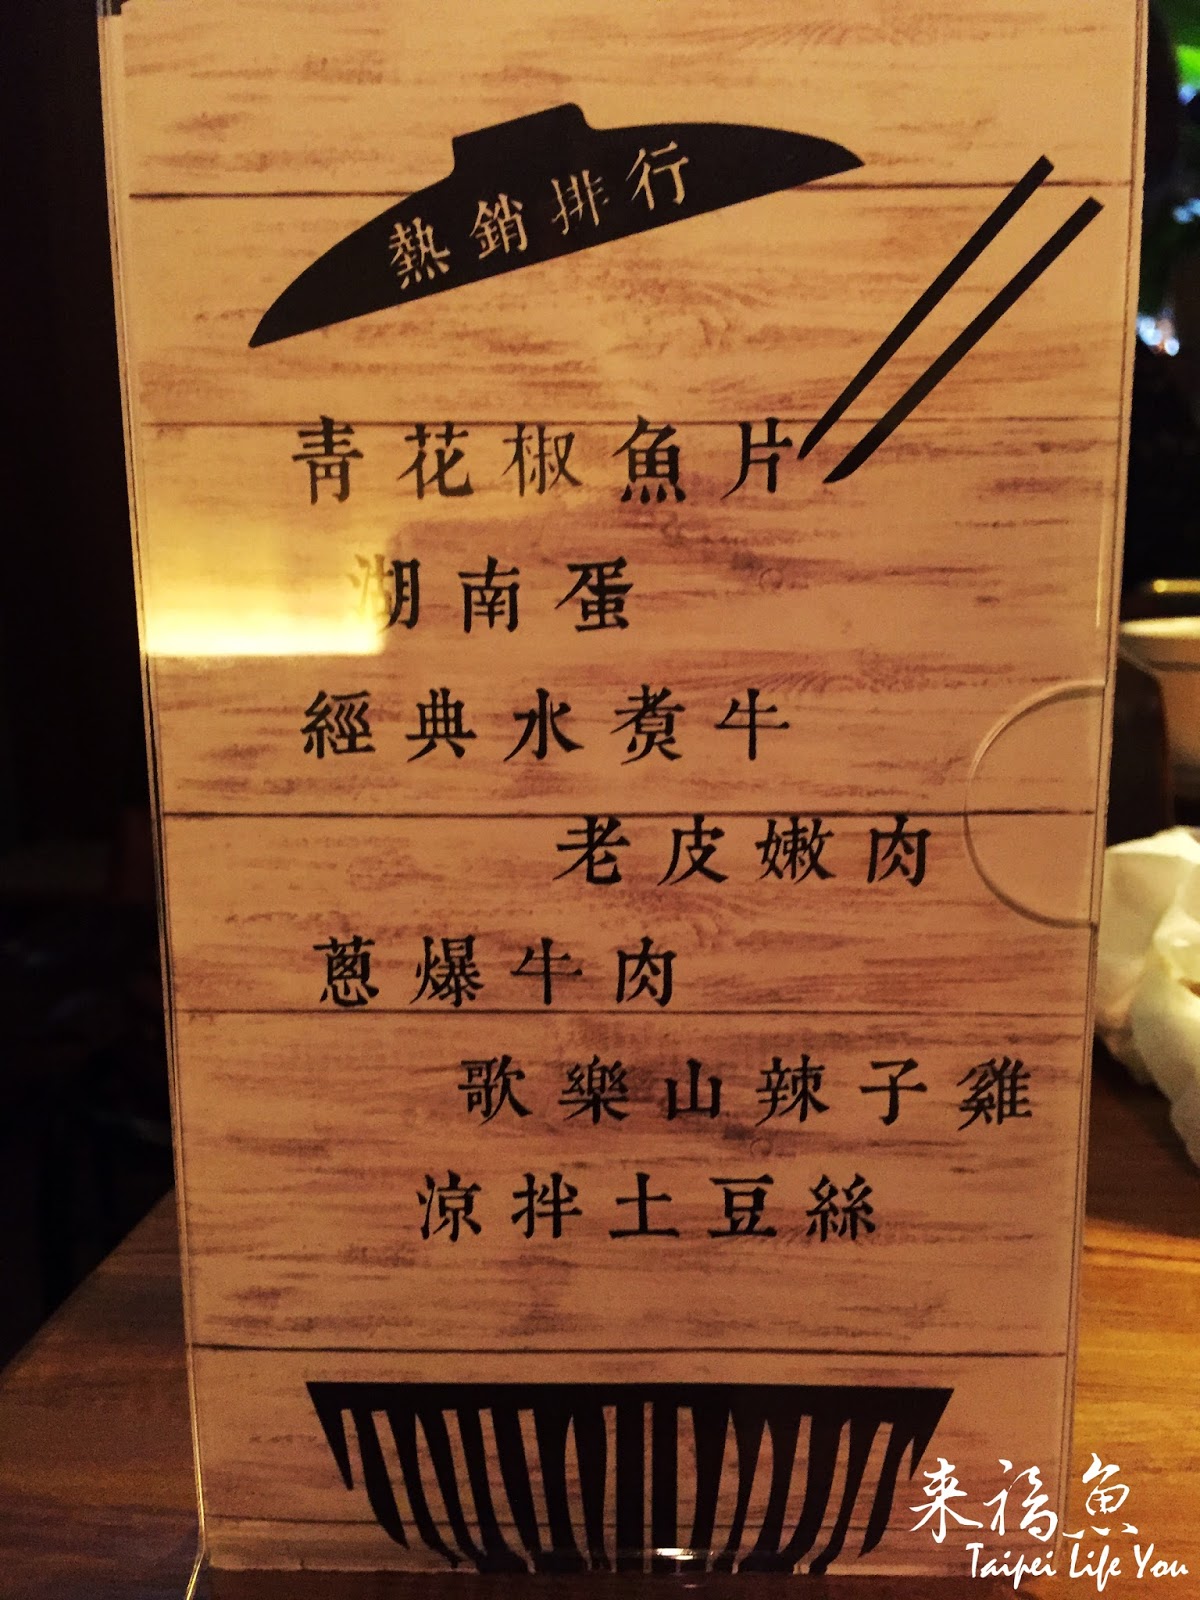 熱銷排行
青花椒魚片
湖南蛋
經典水煮牛
老皮嫩肉
蔥爆牛肉
歌樂山辣子雞
涼拌土豆絲
来福魚
Taipei Life You